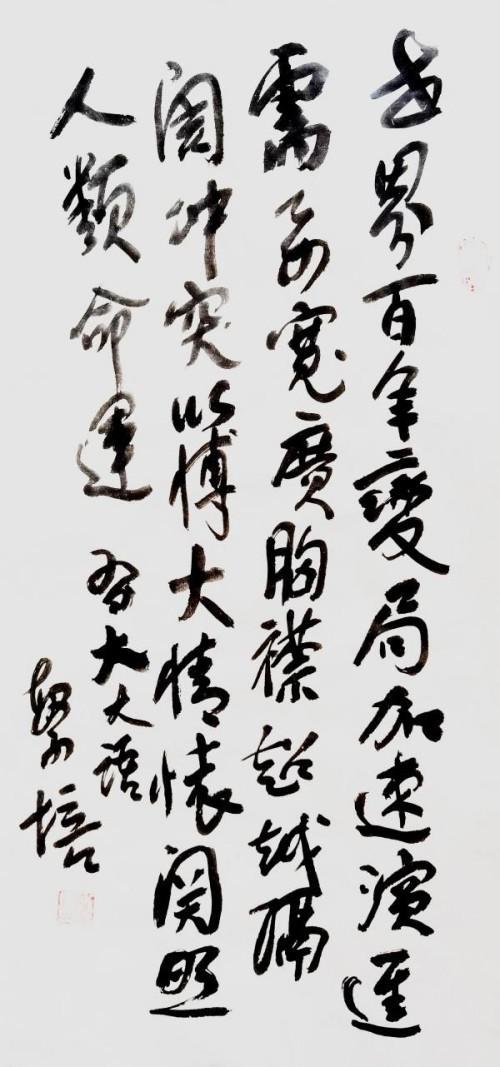 世界百年變局加速演進
需要寬廣胸襟超越隔
閡冲突以博大情懷関照
人類命運 習大大语
培